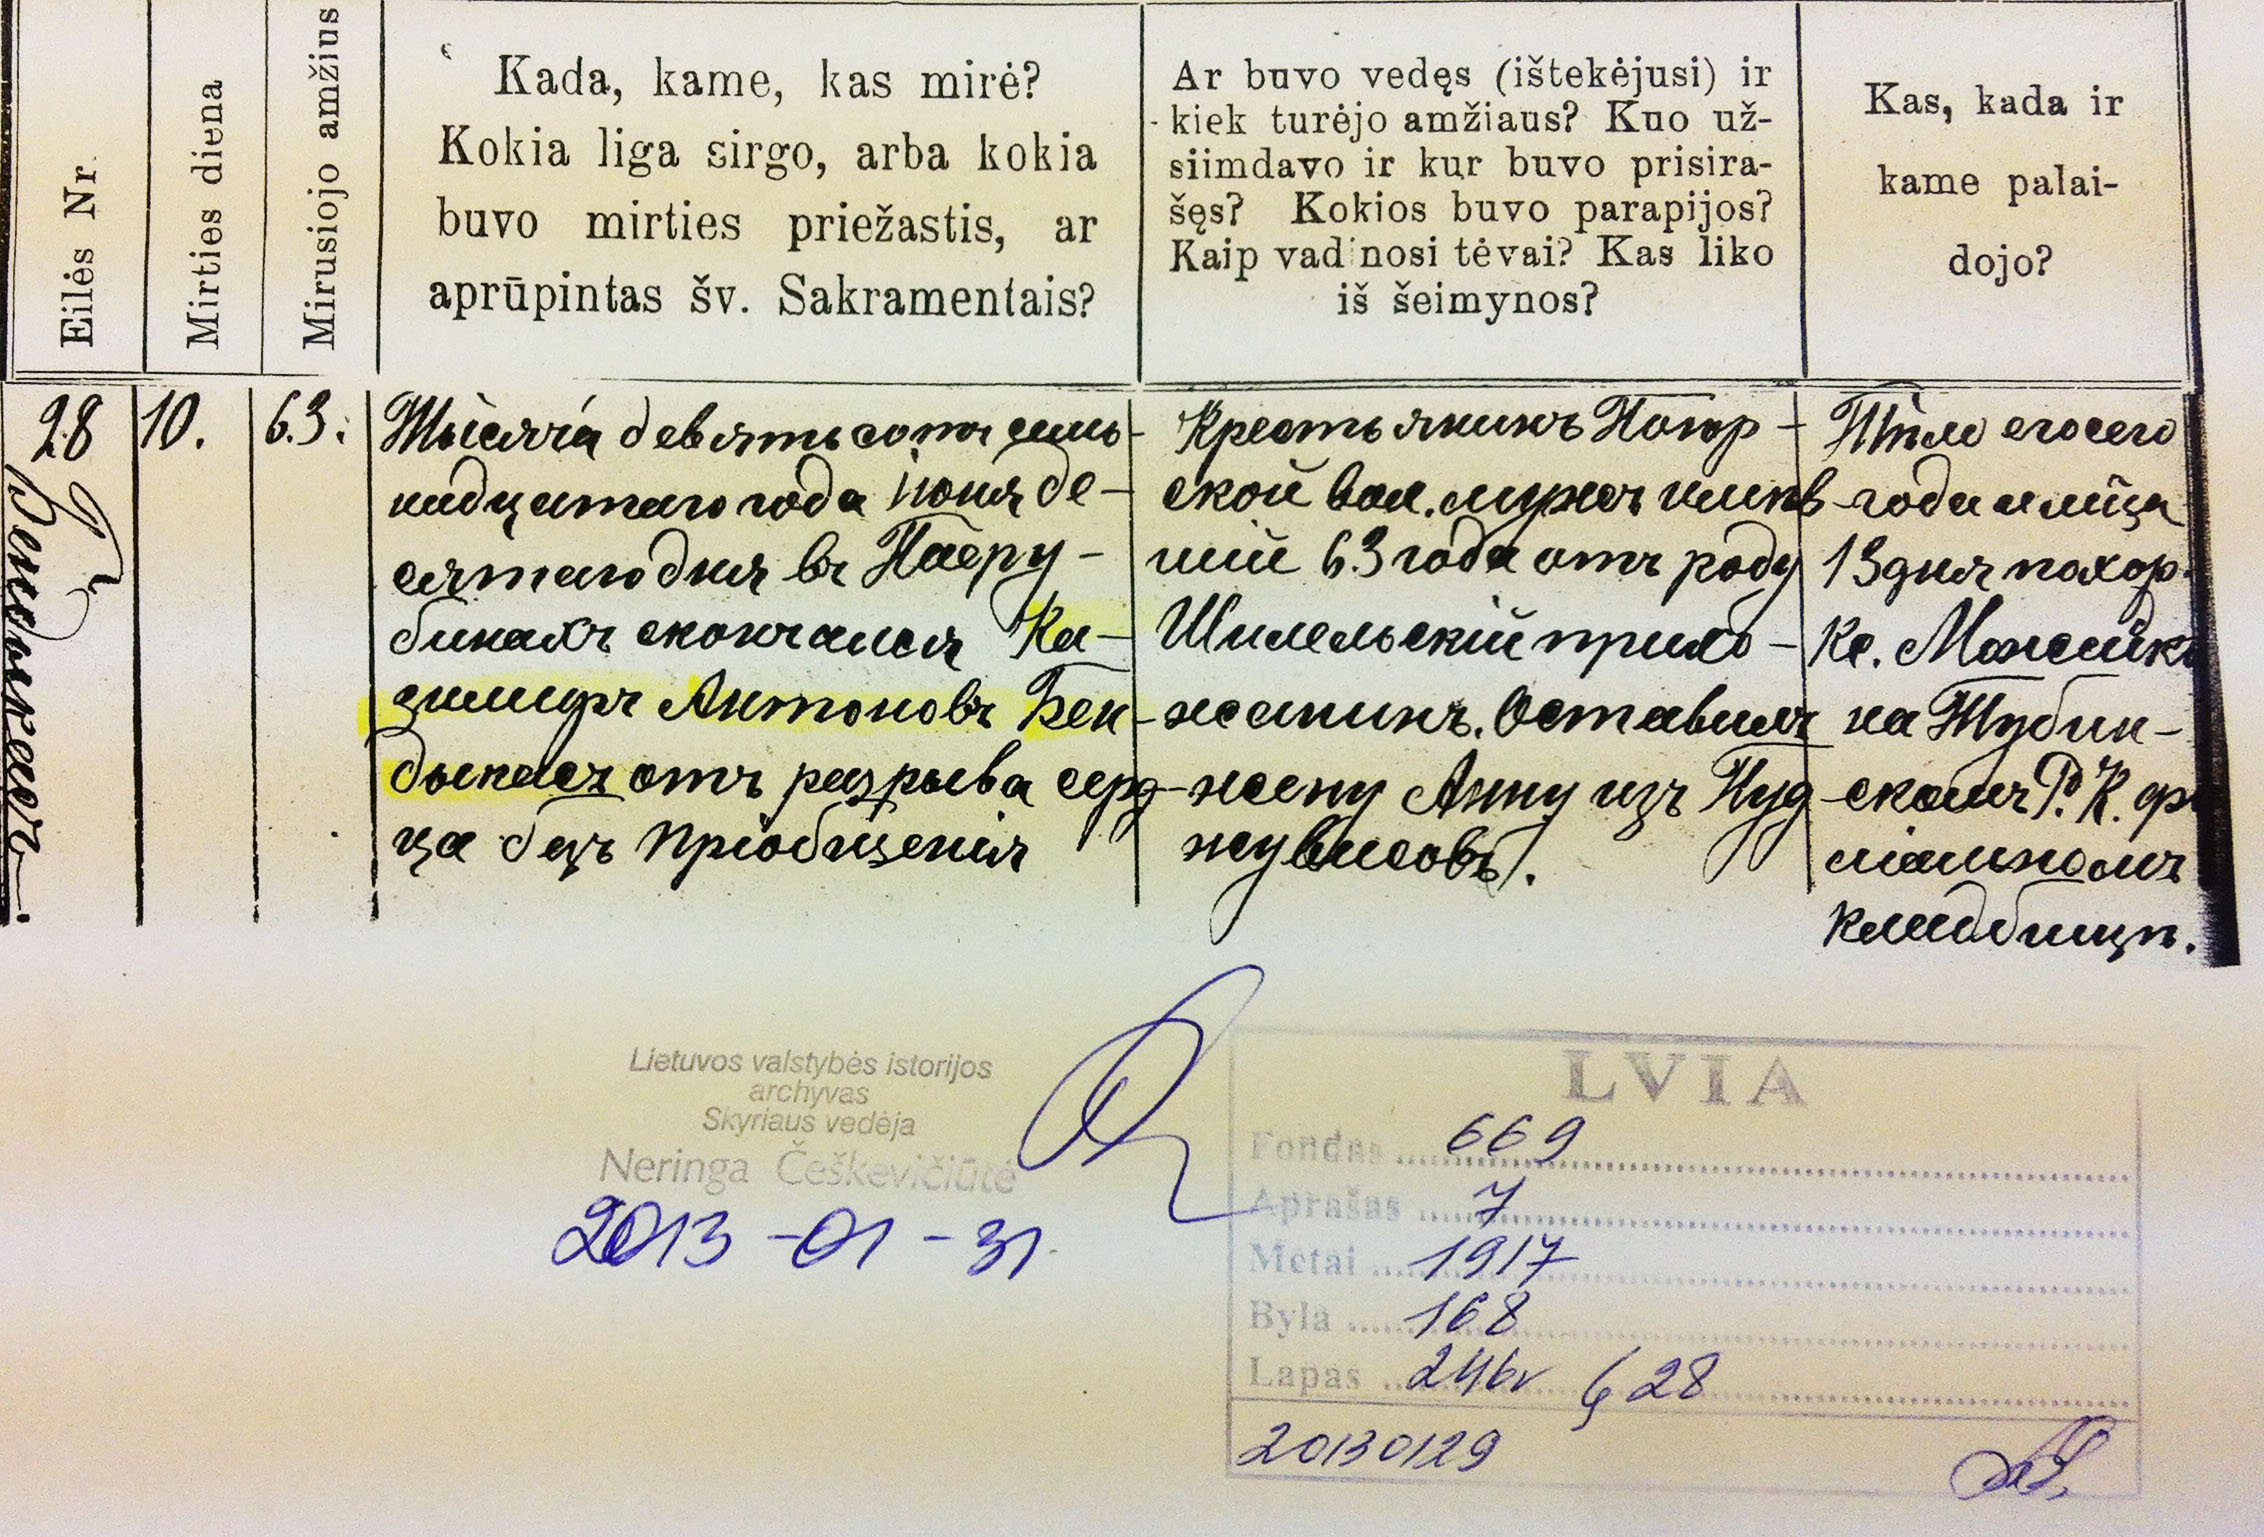 Eilės Nr.
Mirties diena
Mirusiojo amžius
Kada, kame, kas mirė?
Kokia liga sirgo, arba kokia
buvo mirties priežastis, ar
aprūpintas šv. Sakramentais?
Ar buvo vedęs (ištekėjusi) ir
kiek turėjo amžiaus? Kuo už-
siimdavo ir kur buvo prisira-
šęs? Kokios buvo parapijos?
Kaip vadinosi tėvai? Kas liko
iš šeimynos?
Kas, kada ir
kame palai-
dojo?
28
10.
63.
Бендыкасъ
Тысяча девятьсотъ семь-
надцатаго года іюня де-
сятаго дня въ Паеру-
бинахъ скончался Ка-
зимиръ Антоновъ Бен-
дыкасъ отъ разрыва серд-
ца безъ пріобщенія
Крестьянинъ Паюр-
ской вол. мужъ имѣв-
шій 63 года отъ роду
Шилельскій прихо-
жанинъ. Оставилъ
жену Анну изъ Пуд-
жувисовъ.
Тѣло его сего
года и мѣсца
13 дня похор.
Кс. Можейко
на Тубин-
скомъ Р. К. фи
ліальномъ
кладбищѣ.
Lietuvos valstybės istorijos
archyvas
Skyriaus vedėja
Neringa Češkevičiūtė
2013-01-31
LVIA
Fondas 669
Aprašas 7
Metai 1917
Byla 168
Lapas 246v 28
20130129